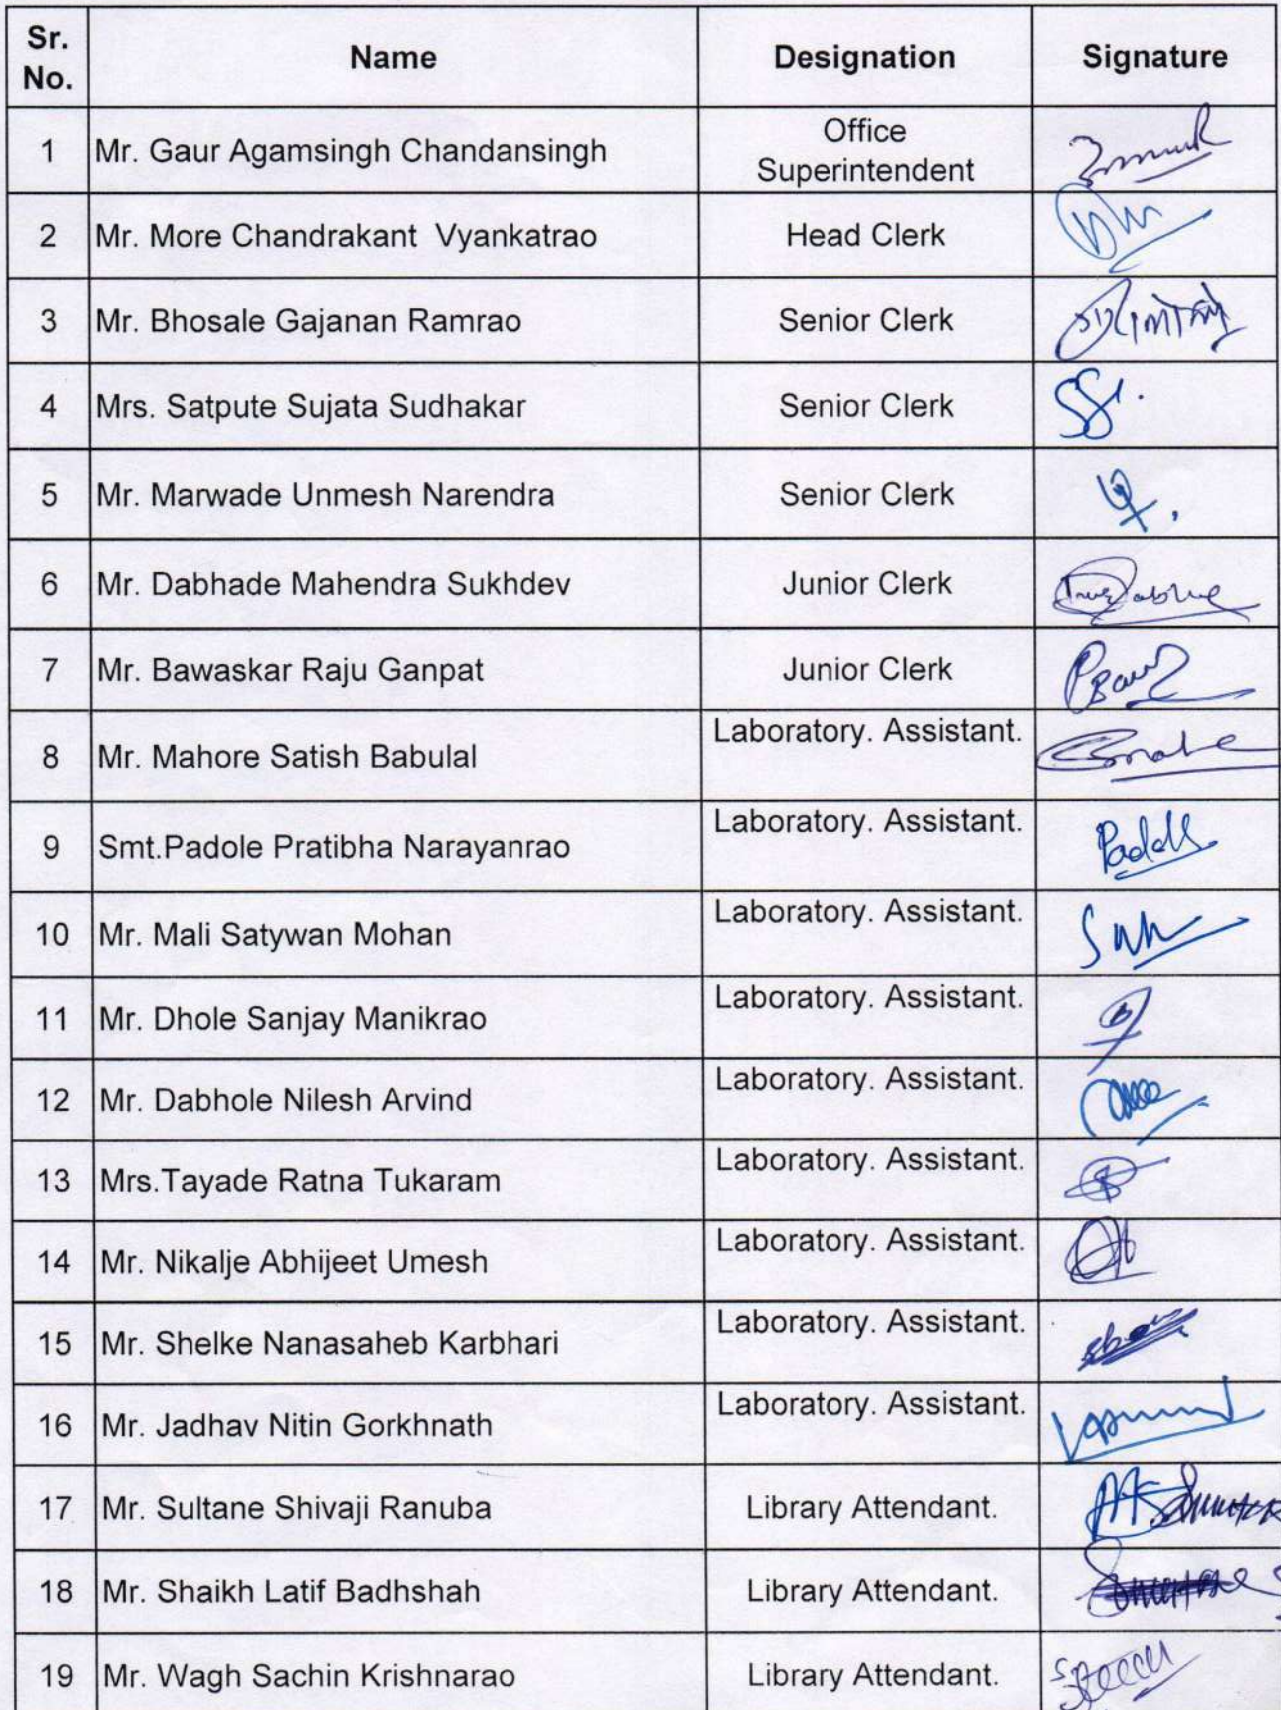 Sr. No. Name Designation Signature
1 Mr. Gaur Agamsingh Chandansingh Office Superintendent
2 Mr. More Chandrakant Vyankatrao Head Clerk
3 Mr. Bhosale Gajanan Ramrao Senior Clerk
4 Mrs. Satpute Sujata Sudhakar Senior Clerk
5 Mr. Marwade Unmesh Narendra Senior Clerk
6 Mr. Dabhade Mahendra Sukhdev Junior Clerk
7 Mr. Bawaskar Raju Ganpat Junior Clerk
8 Mr. Mahore Satish Babulal Laboratory. Assistant.
9 Smt.Padole Pratibha Narayanrao Laboratory. Assistant.
10 Mr. Mali Satywan Mohan Laboratory. Assistant.
11 Mr. Dhole Sanjay Manikrao Laboratory. Assistant.
12 Mr. Dabhole Nilesh Arvind Laboratory. Assistant.
13 Mrs.Tayade Ratna Tukaram Laboratory. Assistant.
14 Mr. Nikalje Abhijeet Umesh Laboratory. Assistant.
15 Mr. Shelke Nanasaheb Karbhari Laboratory. Assistant.
16 Mr. Jadhav Nitin Gorkhnath Laboratory. Assistant.
17 Mr. Sultane Shivaji Ranuba Library Attendant.
18 Mr. Shaikh Latif Badhshah Library Attendant.
19 Mr. Wagh Sachin Krishnarao Library Attendant.